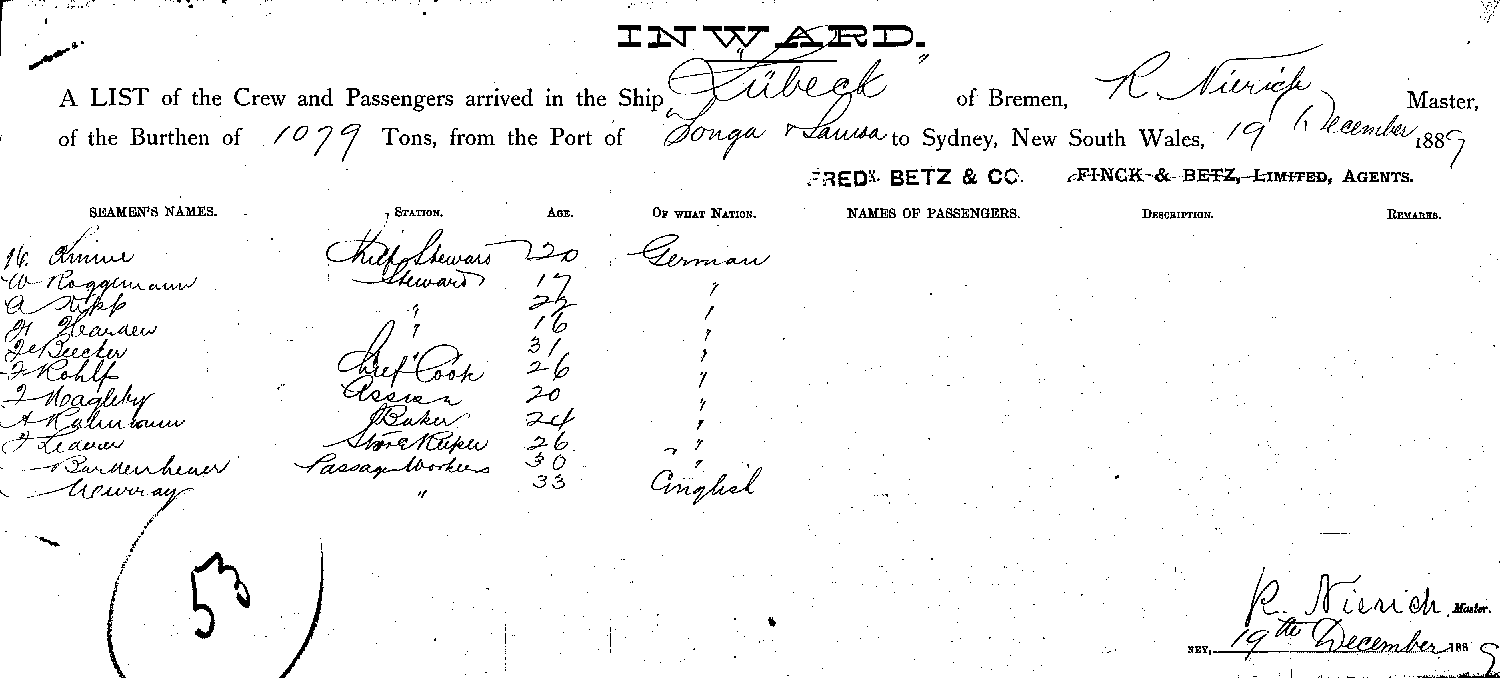 INWARD.
A LIST of the Crew and Passengers arrived in the Ship "Lübeck" of Bremen, R. Nierich Master,
of the Burthen of 1079 Tons, from the Port of Tonga & Samoa to Sydney, New South Wales, 19 December 1889
FREDK. BETZ & CO. FINCK & BETZ, LIMITED, AGENTS.
SEAMEN'S NAMES. STATION. AGE. OF WHAT NATION. NAMES OF PASSENGERS. DESCRIPTION. REMARKS.
H. Kinne Chief Steward 20 German
W Roggemann Steward 17 "
A Kipp " 22 "
" 16 "
Beecker " 31 "
F Rohlfs Chief Cook 26 "
F Nagleby Assist 20 "
A Kuhlmann Baker 24 "
F Lederer Store Keeper 26 "
— Bardenheuer Passage Workers 30 "
— Murray " 33 English
53
R. Nierich Master.
NEY, 19th December 1889